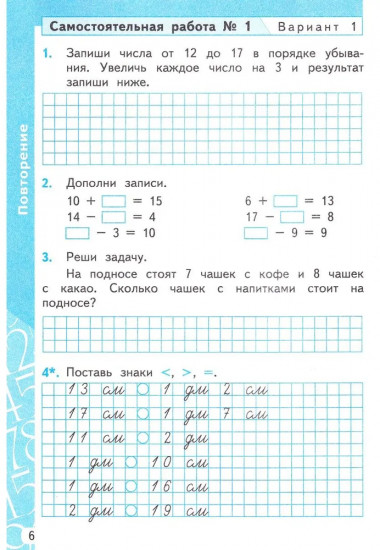 Самостоятельная работа № 1 Вариант 1
1. Запиши числа от 12 до 17 в порядке убыва-
ния. Увеличь каждое число на 3 и результат
запиши ниже.
Повторение
2. Дополни записи.
10 + = 15 6 + = 13
14 − = 4 17 − = 8
− 3 = 10 − 9 = 9
3. Реши задачу.
На подносе стоят 7 чашек с кофе и 8 чашек
с какао. Сколько чашек с напитками стоит на
подносе?
4*. Поставь знаки <, >, =.
13 см 1 дм 2 см
17 см 1 дм 7 см
11 см 2 дм
1 дм 10 см
1 дм 16 см
2 дм 19 см
6